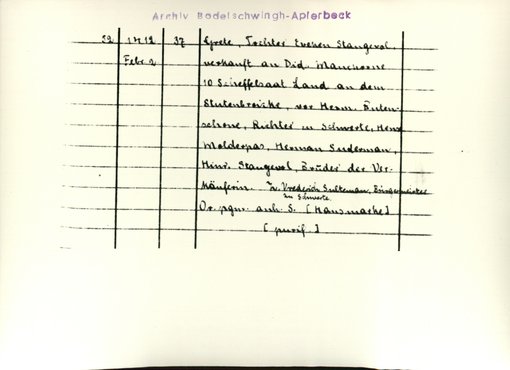 Archiv Bodelschwingh-Aplerbeck
22 1412 37 Grete, Tochter Eveken Stangevol,
Febr. 2 verkauft an Did.
10 Scheffelsaat Land an dem
vor Herm. Buten-
schone, Richter in Schwerte, Henr.
Molderpas, Herman Suderman,
Hinr. Stangevol, Bruder der Ver-
käuferin. Z. Vrederich Sulteman, Bürgermeister
zu Schwerte.
Or. pgm. anh. S. [Hausmarke]